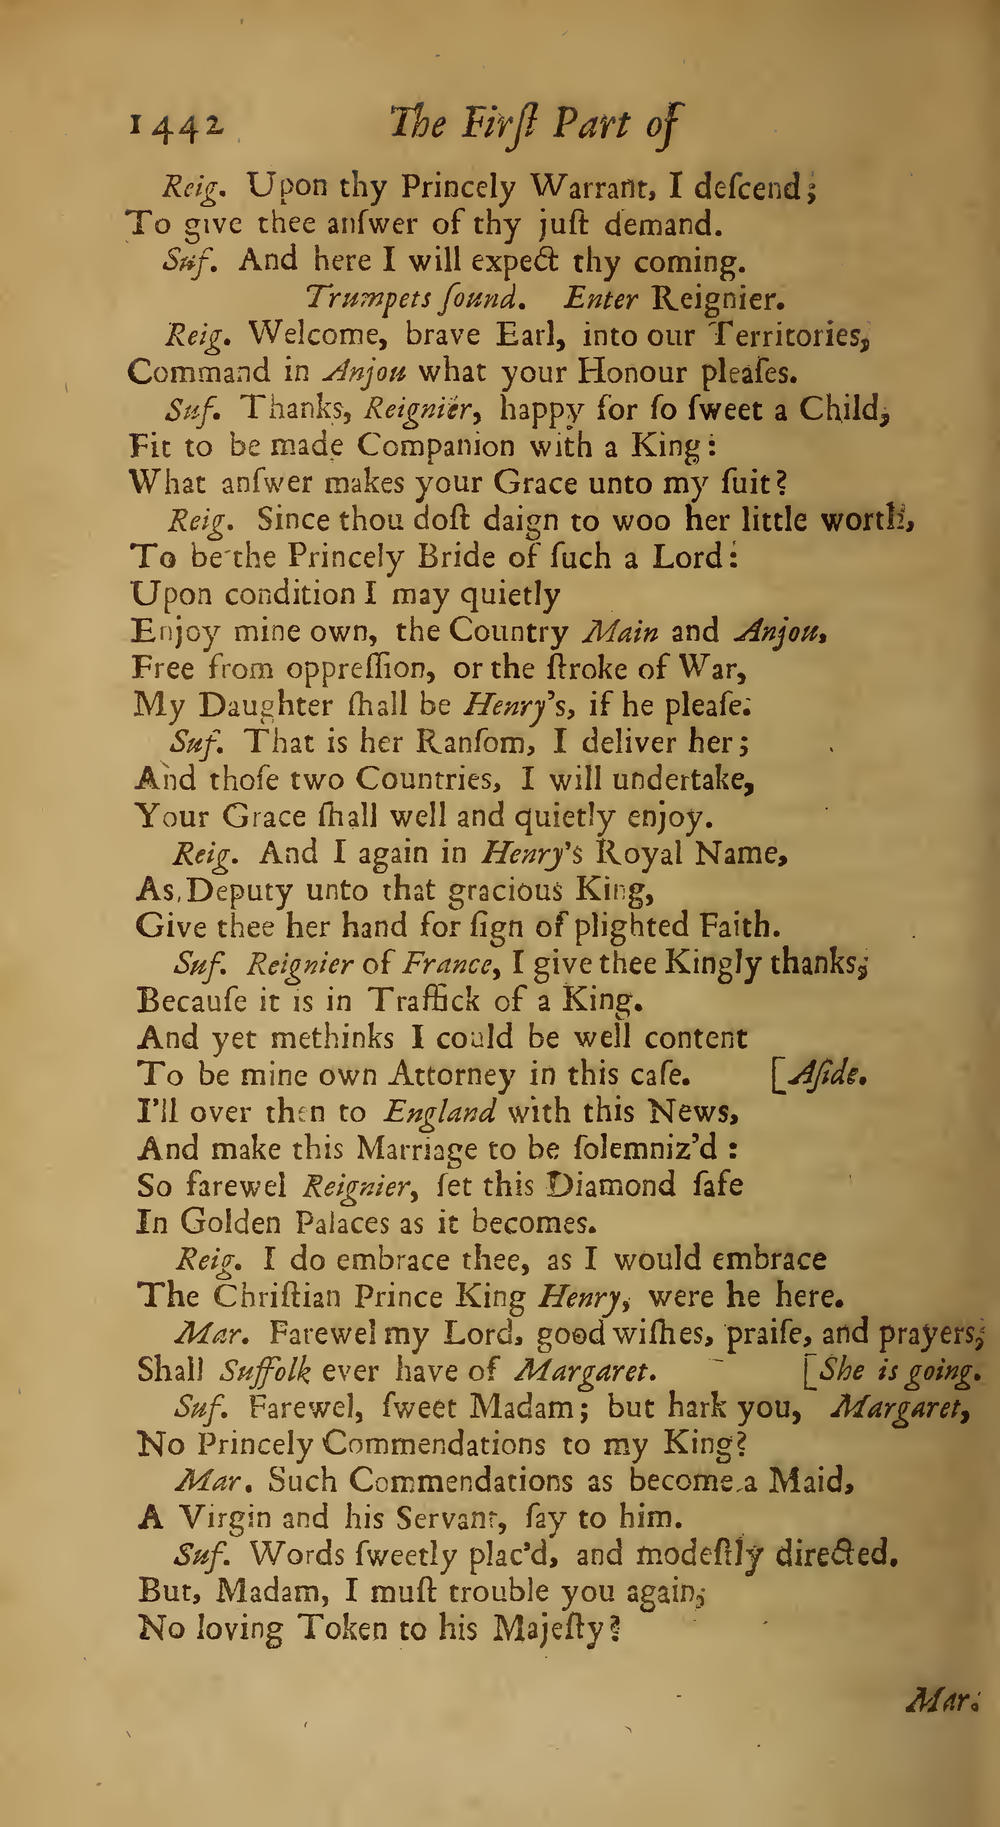 1442 The Firſt Part of
Reig. Upon thy Princely Warrant, I deſcend;
To give thee anſwer of thy juſt demand.
Suf. And here I will expect thy coming.
Trumpets ſound. Enter Reignier.
Reig. Welcome, brave Earl, into our Territories,
Command in Anjou what your Honour pleaſes.
Suf. Thanks, Reignier, happy for ſo ſweet a Child,
Fit to be made Companion with a King:
What anſwer makes your Grace unto my ſuit?
Reig. Since thou doſt daign to woo her little worth,
To be the Princely Bride of ſuch a Lord:
Upon condition I may quietly
Enjoy mine own, the Country Main and Anjou,
Free from oppreſſion, or the ſtroke of War,
My Daughter ſhall be Henry's, if he pleaſe.
Suf. That is her Ranſom, I deliver her;
And thoſe two Countries, I will undertake,
Your Grace ſhall well and quietly enjoy.
Reig. And I again in Henry's Royal Name,
As Deputy unto that gracious King,
Give thee her hand for ſign of plighted Faith.
Suf. Reignier of France, I give thee Kingly thanks,
Becauſe it is in Traffick of a King.
And yet methinks I could be well content
To be mine own Attorney in this caſe. [Aſide.
I'll over then to England with this News,
And make this Marriage to be ſolemniz'd :
So farewel Reignier, ſet this Diamond ſafe
In Golden Palaces as it becomes.
Reig. I do embrace thee, as I would embrace
The Chriſtian Prince King Henry, were he here.
Mar. Farewel my Lord, good wiſhes, praiſe, and prayers,
Shall Suffolk ever have of Margaret. [She is going.
Suf. Farewel, ſweet Madam; but hark you, Margaret,
No Princely Commendations to my King?
Mar. Such Commendations as become a Maid,
A Virgin and his Servant, ſay to him.
Suf. Words ſweetly plac'd, and modeſtly directed.
But, Madam, I muſt trouble you again,
No loving Token to his Majeſty?
Mar.